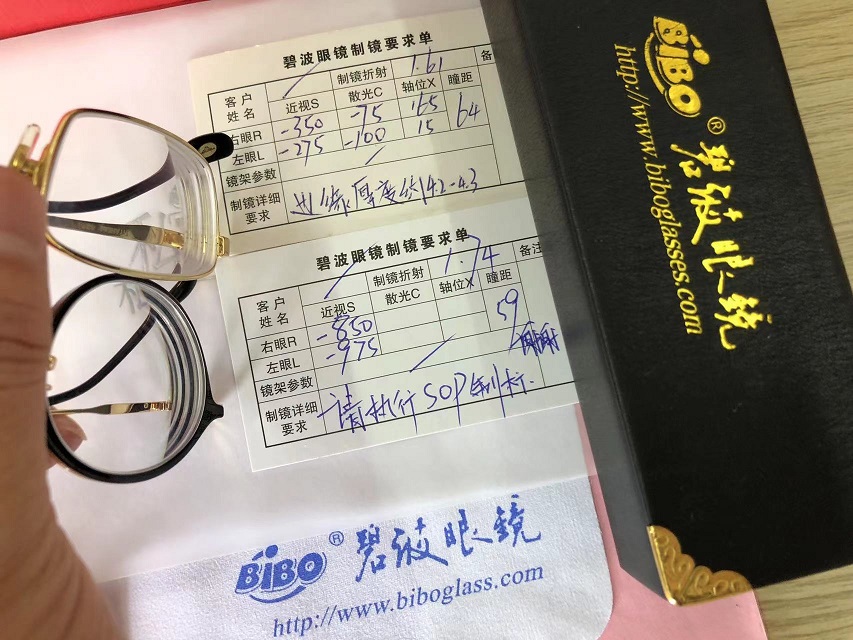 碧波眼镜制镜要求单
客户姓名 制镜折射 1.61 备
近视S 散光C 轴位X 瞳距
右眼R -350 -75 165 64
左眼L -275 -100 15
镜架参数
制镜详细要求 边缘厚度约4.2-4.3
碧波眼镜制镜要求单
客户姓名 制镜折射 1.74 备注
近视S 散光C 轴位X 瞳距
右眼R -850 59
左眼L -975
镜架参数
制镜详细要求 请执行SOP制标.
BiBO®碧波眼镜
http://www.biboglass.com
BiBO®碧波眼镜
http://www.biboglasses.com